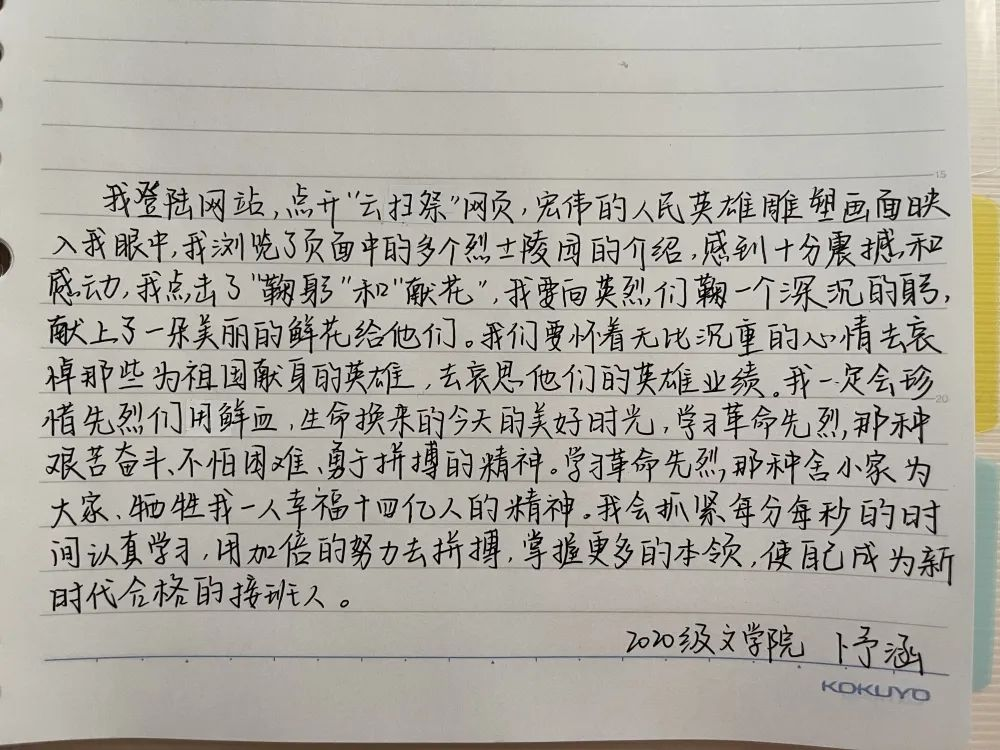 15
我登陆网站,点开“云扫祭”网页,宏伟的人民英雄雕塑画面映
入我眼中,我浏览了页面中的多个烈士陵园的介绍,感到十分震撼和
感动,我点击了“鞠躬”和“献花”,我要向英烈们鞠一个深沉的躬,
献上了一朵美丽的鲜花给他们。我们要怀着无比沉重的心情去哀
悼那些为祖国献身的英雄,去哀思他们的英雄业绩。我一定会珍
20
惜先烈们用鲜血,生命换来的今天的美好时光,学习革命先烈,那种
艰苦奋斗、不怕困难、勇于拼搏的精神。学习革命先烈,那种舍小家为
大家、牺牲我一人幸福十四亿人的精神。我会抓紧每分每秒的时
间认真学习,用加倍的努力去拼搏,掌握更多的本领,使自己成为新
时代合格的接班人。
2020级文学院 卜予涵
KOKUYO